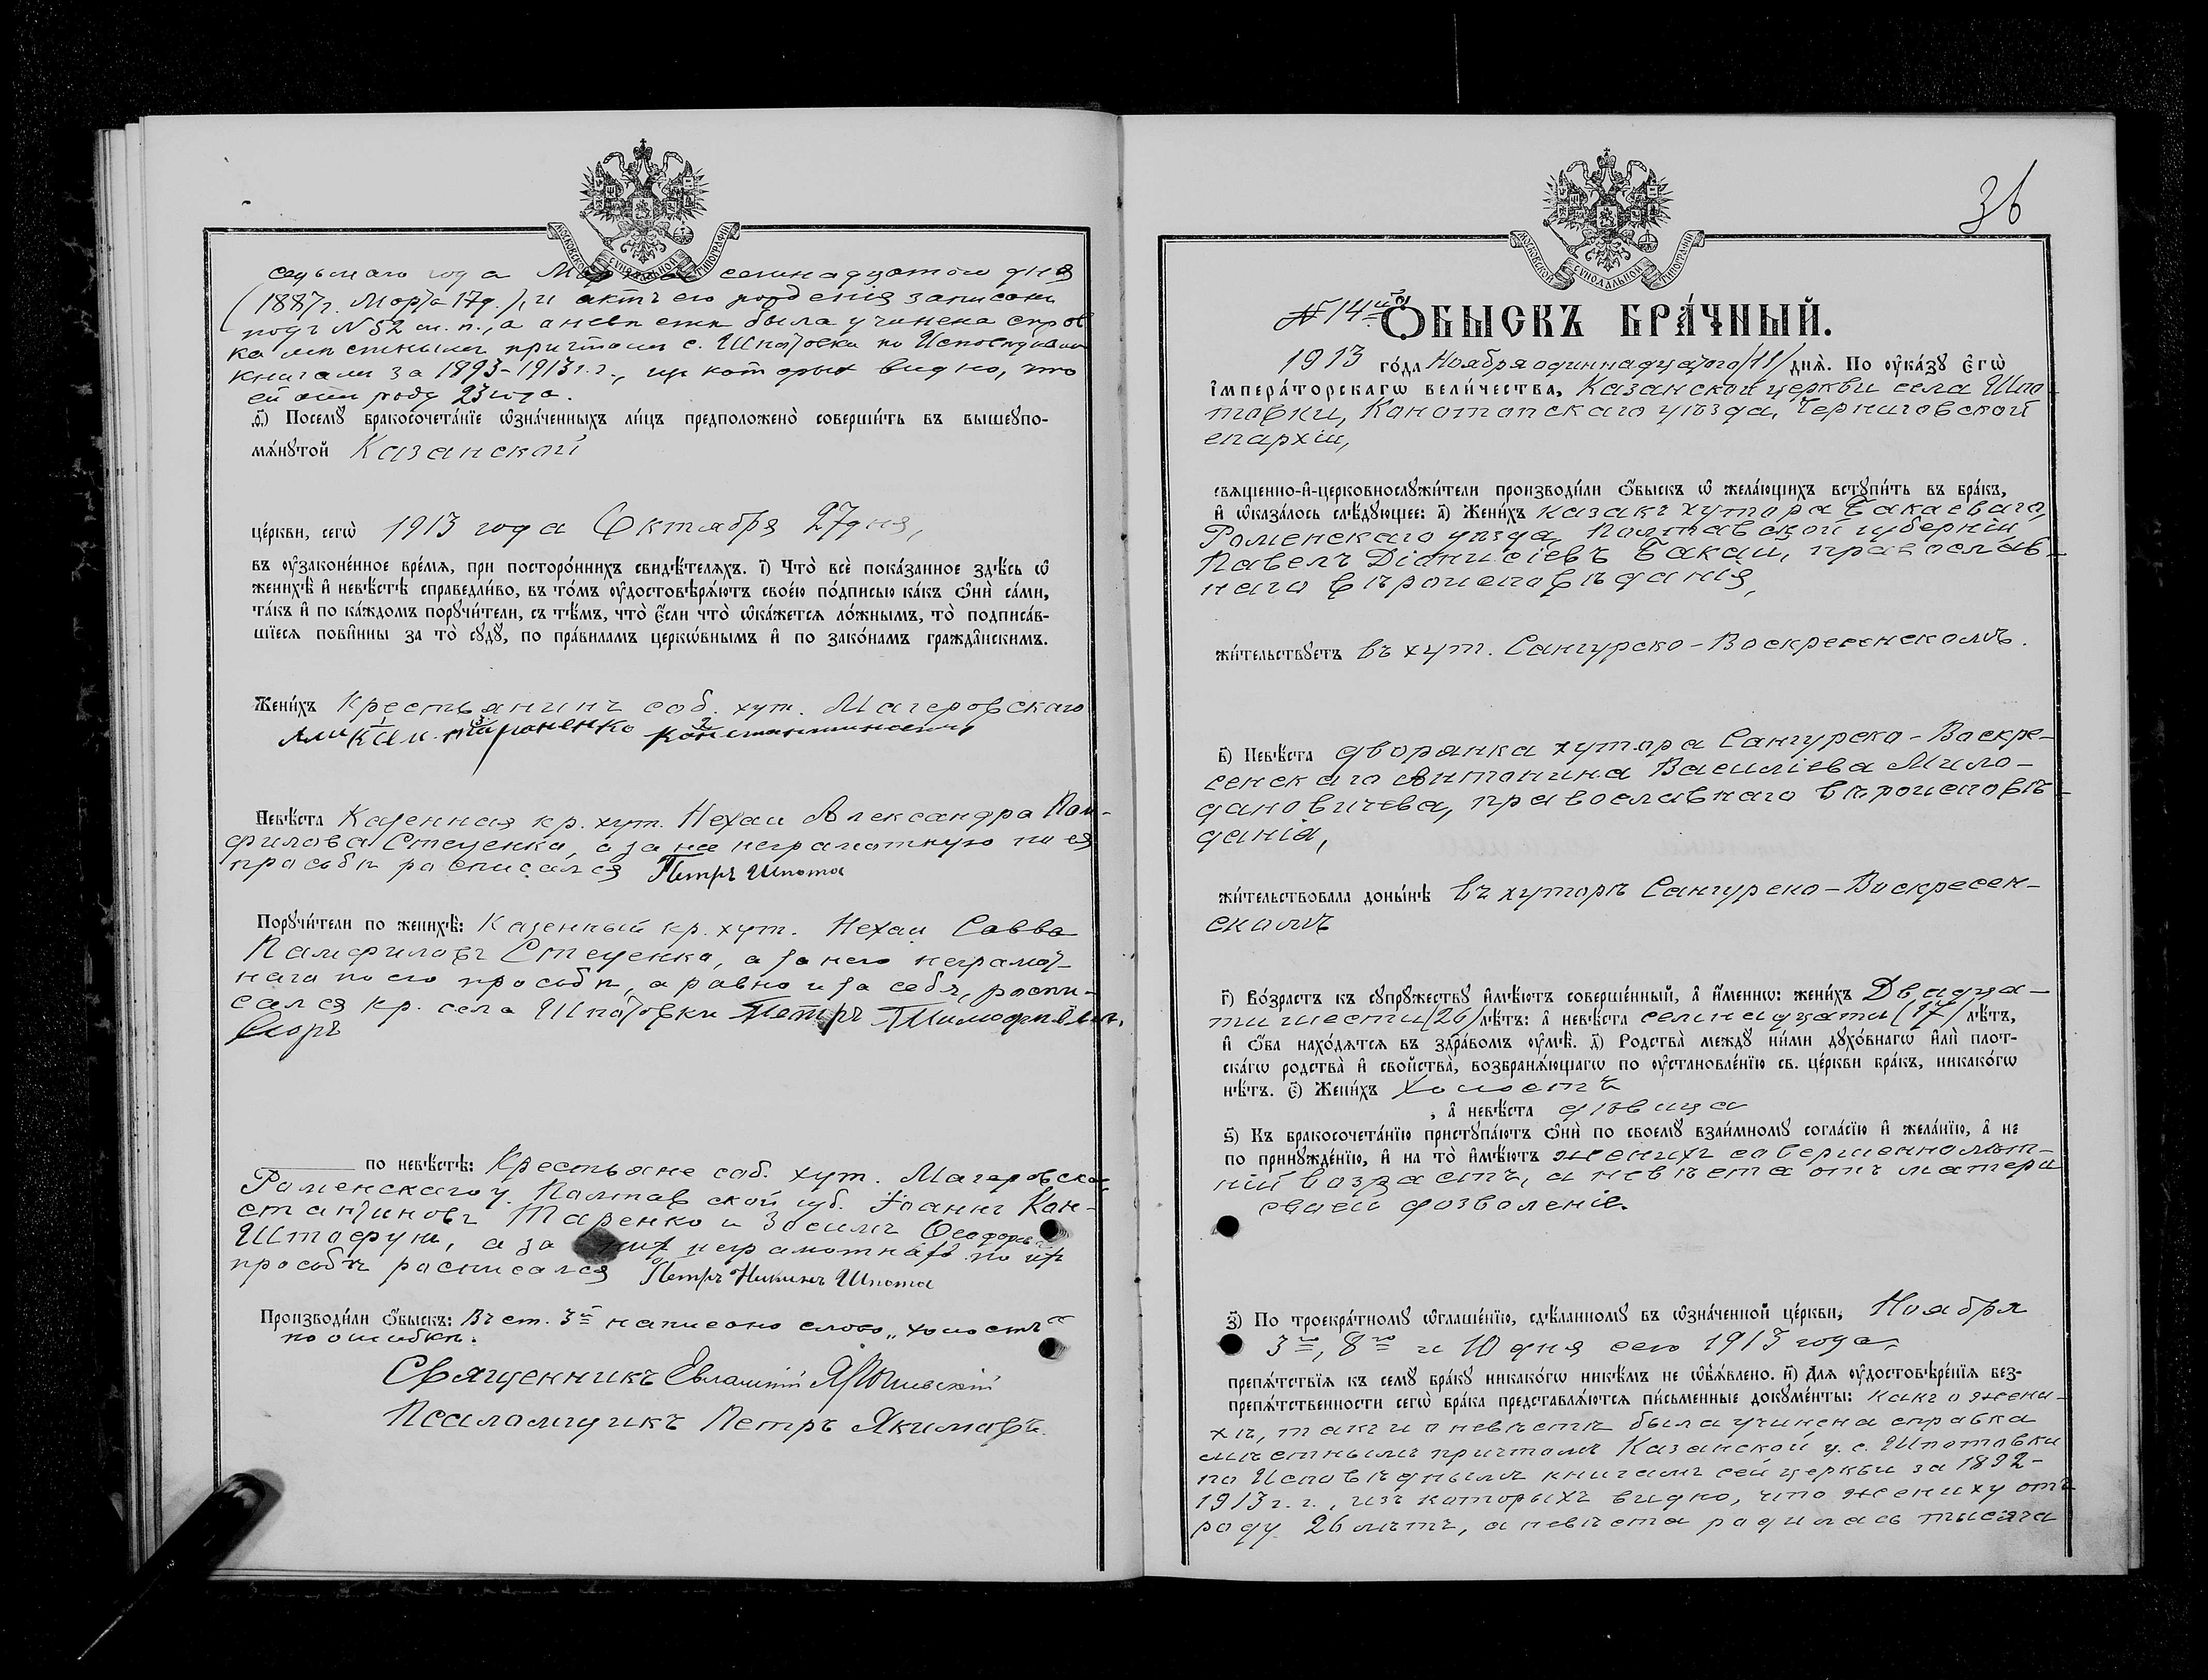 МОСКОВСКОЙ СѴНОДАЛЬНОЙ ТИПОГРАФІИ
седьмаго года Марта семнадцатого дня
(1887г. Марта 17д.), и актъ его рожденія записанъ
подъ №52 м. п., а о невѣстѣ была учинена справ
ка мѣстнымъ причтомъ с. Шпотовки по Исповѣднымъ
книгамъ за 1893-1913 г.г., изъ которыхъ видно, что
ей отъ роду 23 года.
ѳ҃) Посемꙋ бракосочета́нїе ѡзна́ченныхъ ли́цъ предположено̀ соверши́ть въ вышеупо-
мѧ́нꙋтой Казанской
це́ркви, сегѡ̀ 1913 года Октября 27 дня,
въ ᲂу҆законе́нное вре́мѧ, при посторо́ннихъ свидѣ́телѧхъ. і҃) Что̀ всѐ пока́занное здѣ́сь ѡ҆
женихѣ̀ и҆ невѣ́стѣ справедли́во, въ то́мъ ᲂу҆достовѣрѧ́ютъ свое́ю по́дписью ка́къ ѻ҆нѝ са́ми,
та́къ и҆ по ка́ждомъ порꙋчи́тели, съ тѣ́мъ, что̀ є҆́сли что̀ ѡ҆ка́жетсѧ ло́жнымъ, то̀ подписа́в-
шїесѧ пови́нны за то̀ сꙋдꙋ̀, по пра́виламъ церкѡ́внымъ и҆ по зако́намъ гражда̂нскимъ.
Жени́хъ Крестьянинъ соб. хут. Магеровскаго
Невѣ́ста Казенная кр. хут. Нехаи Александра Пам-
филова Стеценко, а за нее неграмотную по ея
просьбѣ росписался Петръ Шпота
Порꙋчи́тели по женихѣ̀: Казенный кр. хут. Нехаи Савва
Памфиловъ Стеценко, а за него неграмот-
наго по его просьбѣ, а равно и за себя, роспи-
сался кр. села Шпотовки Петръ Тимофѣевъ
по невѣ́стѣ: Крестьяне соб. хут. Магеровскаго
Роменскаго у. Полтавской губ. Іоаннъ Кон-
стантиновъ Таренко и Зосимъ Ѳеодоровъ
а за нихъ неграмотныхъ по ихъ
просьбѣ росписался Петръ Никинъ Шпота
Производи́ли ѻ҆́быскъ: Въ ст. 3й написано слово „холостъ“
по ошибкѣ.
Священникъ Евлампій
Псаломщикъ Петръ Якимовъ.
36
МОСКОВСКОЙ СѴНОДАЛЬНОЙ ТИПОГРАФІИ
№ 14й
Ѻ҆БЫСКЪ БРА́ЧНЫЙ.
1913 го́да Ноября одиннадцатого /11/ днѧ̀. По ᲂу҆ка́зꙋ Є҆гѡ̀
і҆мпера́торскагѡ вели́чества, Казанской церкви села Шпо-
товки, Конотопскаго уѣзда, Черниговской
епархіи,
свѧще́нно-и҆-церковнослꙋжи́тели производи́ли ѻ҆́быскъ ѡ҆ жела́ющихъ встꙋпи́ть въ бра́къ,
и҆ ѡ҆каза́лось слѣ́дꙋющее: а҃) Жени́хъ казакъ хутора Бакаеваго,
Роменскаго уѣзда, Полтавской губерніи,
Павелъ Діонисіевъ Бакаи, православ-
наго вѣроисповѣданія,
жи́тельствꙋетъ въ хут. Сангурско-Воскресенскомъ.
в҃) Невѣ́ста дворянка хутора Сангурско-Воскре-
сенскаго Антонина Василіева Мило-
дановичева, православнаго вѣроисповѣ-
данія,
жи́тельствовала доны́нѣ въ хуторѣ Сангурско-Воскресен-
скомъ
г҃) Во́зрастъ къ сꙋпрꙋ́жествꙋ и҆мѣ́ютъ соверше́нный, а҆ и҆́меннѡ: жени́хъ Двадца-
ти шести (26) лѣ́тъ: а҆ невѣ́ста семнадцати (17) лѣ́тъ,
и҆ ѻ҆́ба нахо́дѧтсѧ въ здра́вомъ ᲂу҆мѣ̀. д҃) Родства̀ междꙋ ни́ми дꙋхо́внагѡ и҆лѝ плот-
ска́гѡ родства̀ и҆ свойства̀, возбранѧ́ющагѡ по ᲂу҆становле́нїю св. це́ркви бра́къ, никако́гѡ
нѣ́тъ. є҃) Жени́хъ холостъ
, а҆ невѣ́ста дѣвица
ѕ҃) Къ бракосочета́нїю пристꙋпа́ютъ ѻ҆нѝ по своемꙋ̀ взаи́мномꙋ согла́сїю и҆ жела́нїю, а҆ не
по принꙋжде́нїю, и҆ на то̀ и҆мѣ́ютъ женихъ совершеннолѣт-
ній возрастъ, а невѣста отъ матери
своей дозволеніе.
з҃) По троекра́тномꙋ ѡ҆глаше́нїю, сдѣ́ланномꙋ въ ѡ҆зна́ченной це́ркви, Ноября
3го, 8го и 10 дня сего 1913 года,
препѧ́тствїѧ къ семꙋ̀ бра́кꙋ никако́гѡ никѣ́мъ не ѡ҆б̾ѧ́влено. и҃) Длѧ ᲂу҆достовѣре́нїѧ без-
препѧ́тственности сегѡ̀ бра́ка представлѧ́ютсѧ пи́сьменные докꙋме́нты: какъ о жени-
хѣ, такъ и о невѣстѣ была учинена справка
мѣстнымъ причтомъ Казанской ц. с. Шпотовки
по Исповѣднымъ книгамъ сей церкви за 1892-
1913 г.г., изъ которыхъ видно, что жениху отъ
роду 26 лѣтъ, а невѣста родилась тысяча